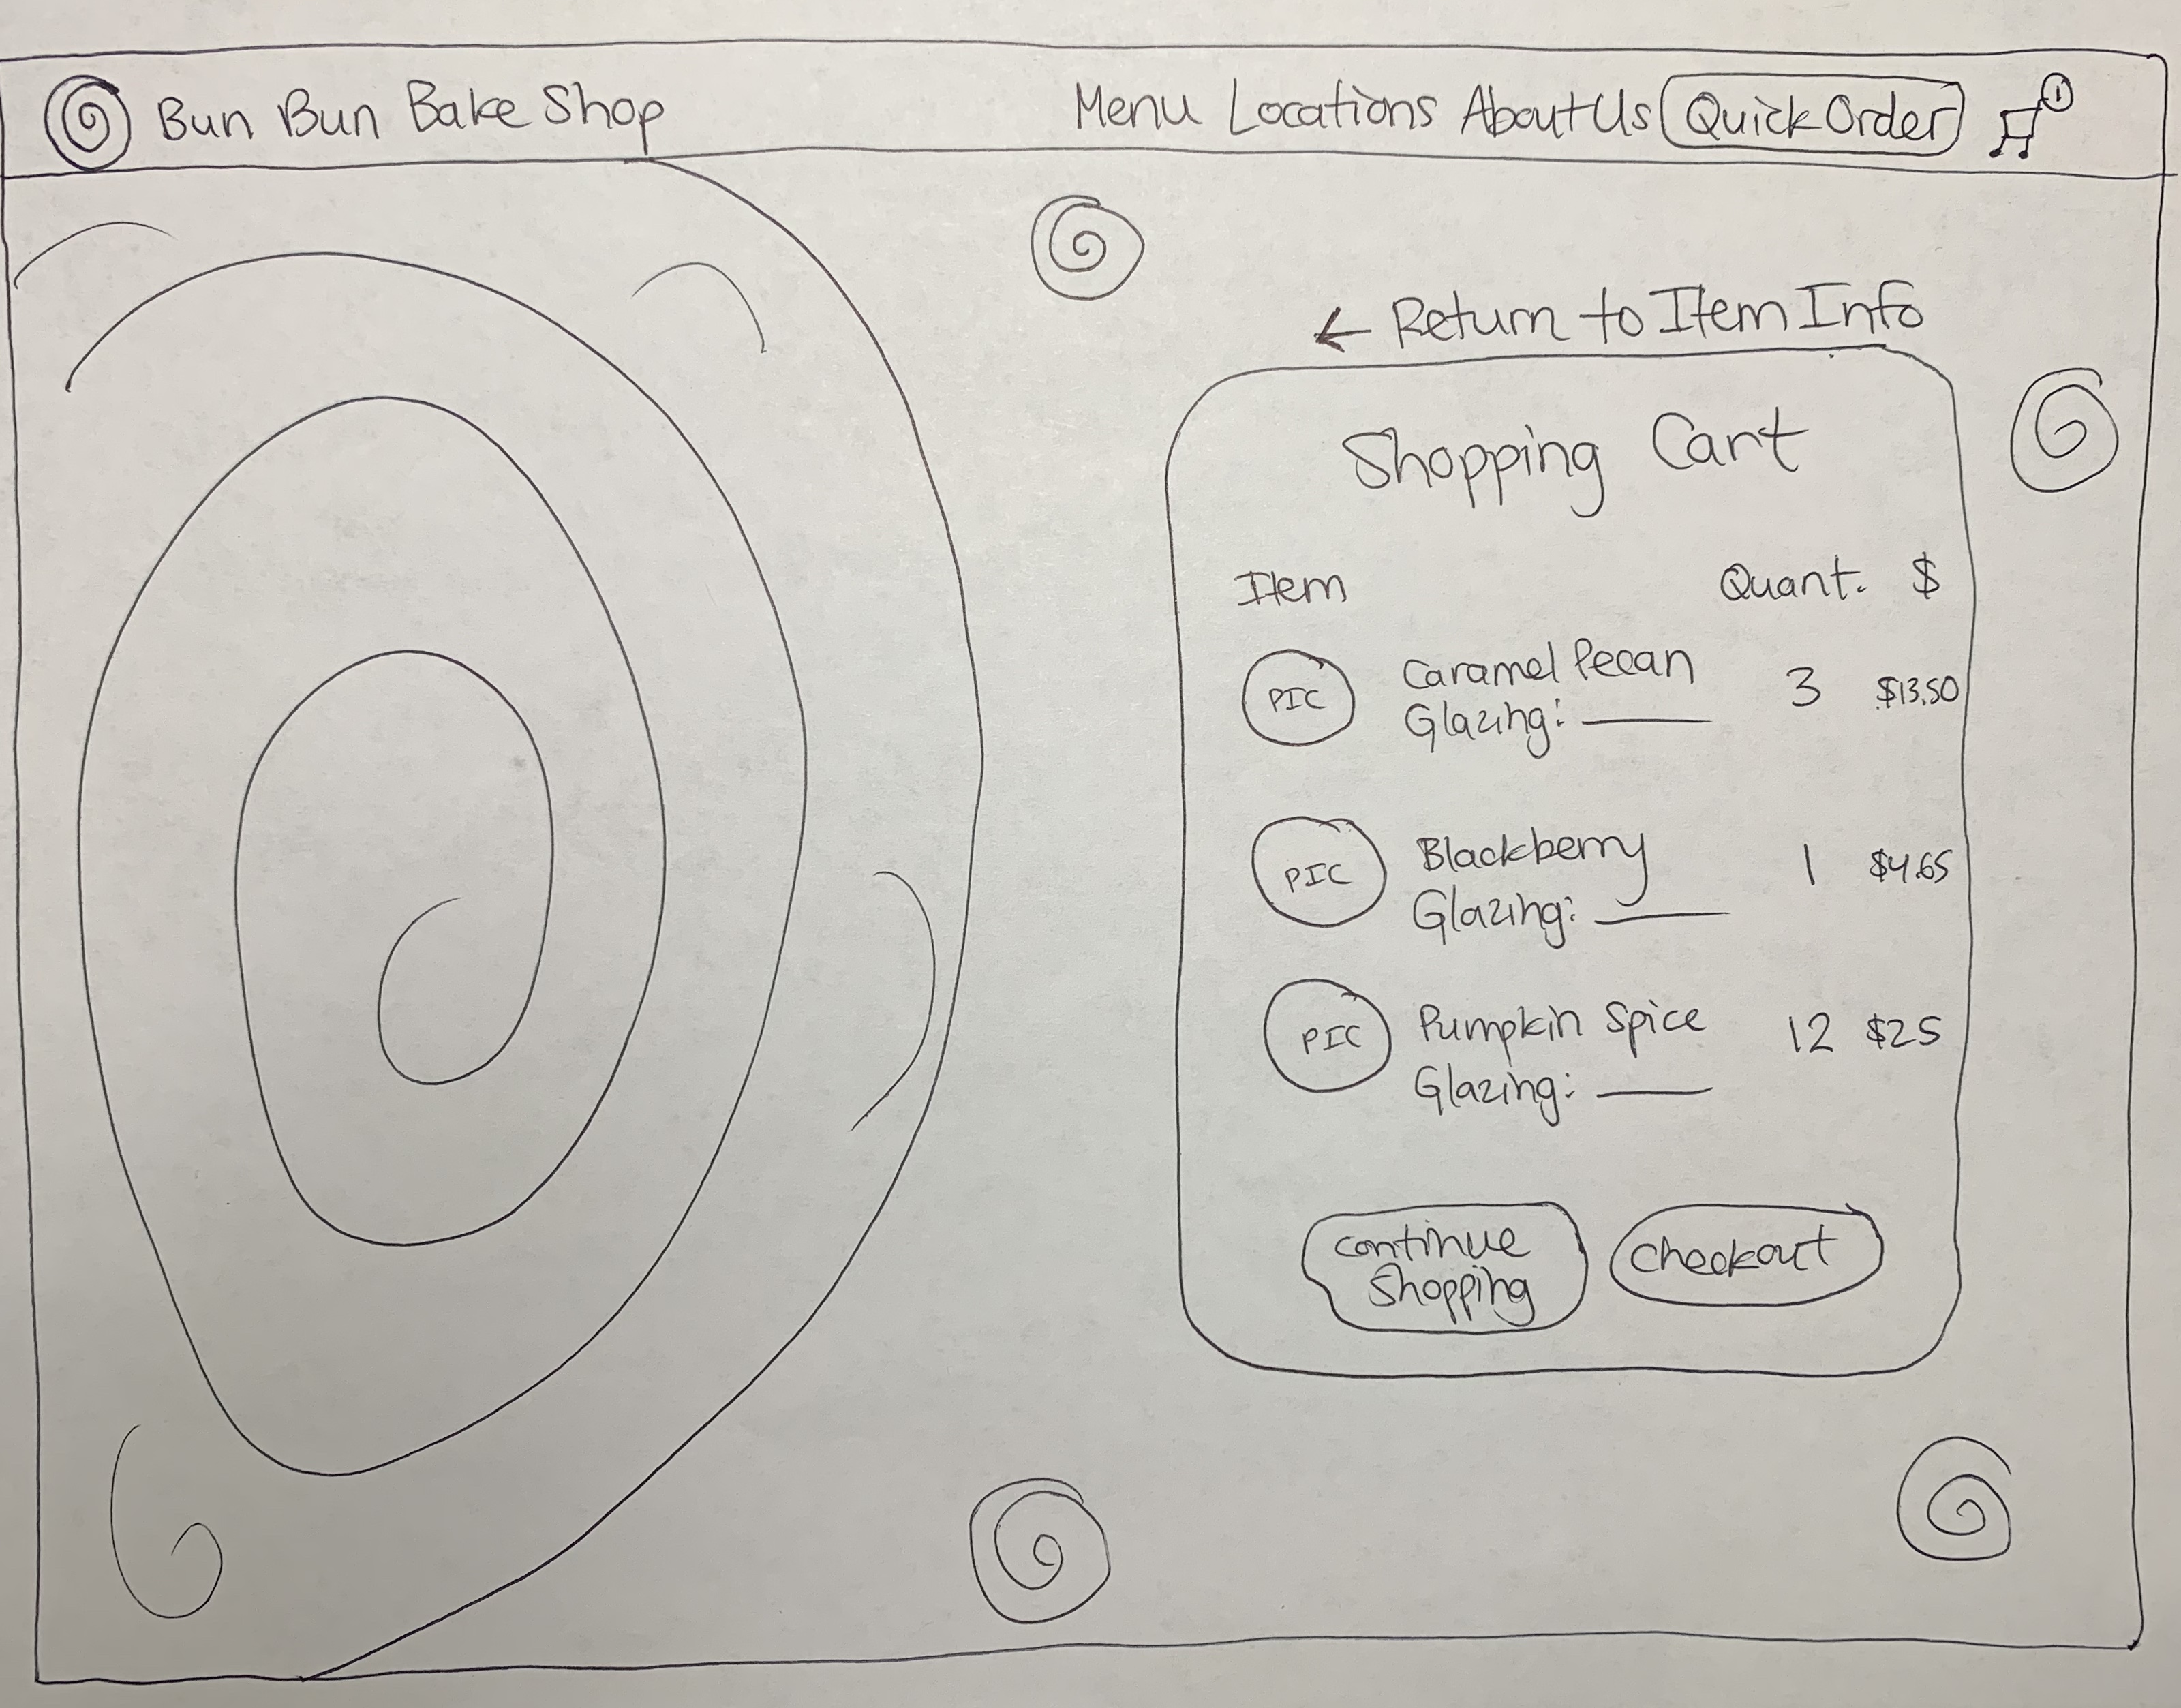 Bun Bun Bake Shop Menu Locations About Us Quick Order 1
← Return to Item Info
Shopping Cart
Item Quant. $
PIC Caramel Pecan 3 $13.50
Glazing:
PIC Blackberry 1 $4.65
Glazing:
PIC Pumpkin Spice 12 $25
Glazing:
Continue Shopping
Checkout